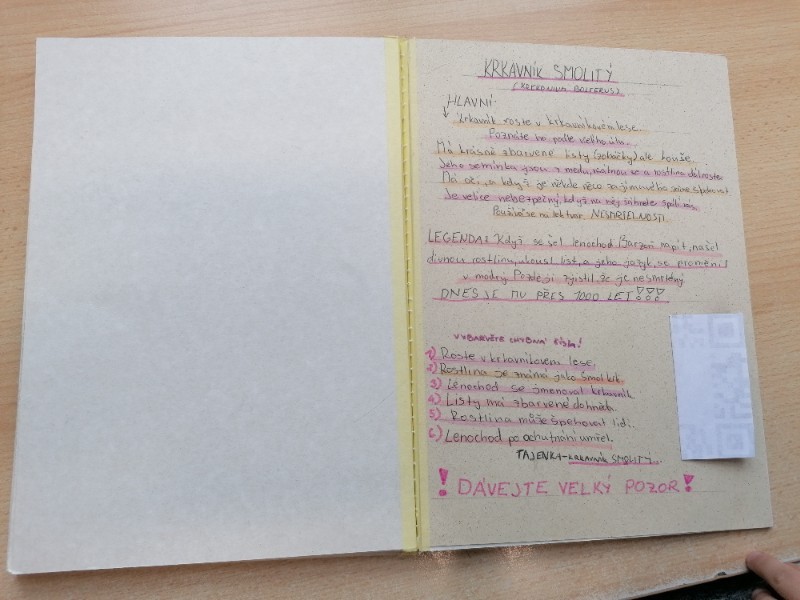 KRKAVNÍK SMOLITÝ
HLAVNÍ:
Krkavník roste v krkavníkovém lese.
Poznáte ho podle
Má krásně zbarvené listy (zobáčky) ale kouše.
Jeho semínka jsou z medu, a rostlina
Má oči, a když je někde něco zajímavého
Je velice nebezpečný, když na něj
Používá se na lektvar NESMRTELNOSTI.
LEGENDA: Když se šel lenochod napít, našel
divnou rostlinu, ukousl list, a jeho jazyk se proměnil
v modrý. Později zjistil, že je nesmrtelný
DNES JE MU PŘES 1000 LET!!!
VYBARVĚTE CHYBNÁ ČÍSLA!
1) Roste v krkavníkovém lese.
2) Rostlina je známá jako
3) Lenochod se jmenoval krkavník
4) Listy má zbarvené dohněda.
5) Rostlina může špehovat lidi.
6) Lenochod po ochutnání umřel.
TAJENKA-KRKAVNÍK SMOLITÝ.
! DÁVEJTE VELKÝ POZOR!